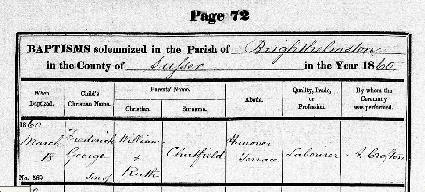 Page 72
BAPTISMS solemnized in the Parish of Brighthelmston
in the County of Sussex in the Year 1860
When Baptized. Child's Christian Name. Parents' Name. Abode. Quality, Trade, or Profession. By whom the Ceremony was performed.
Christian. Surname.
1860
March 18 Frederick George Son of William & Ruth Chatfield Hanover Terrace Labourer
No. 569